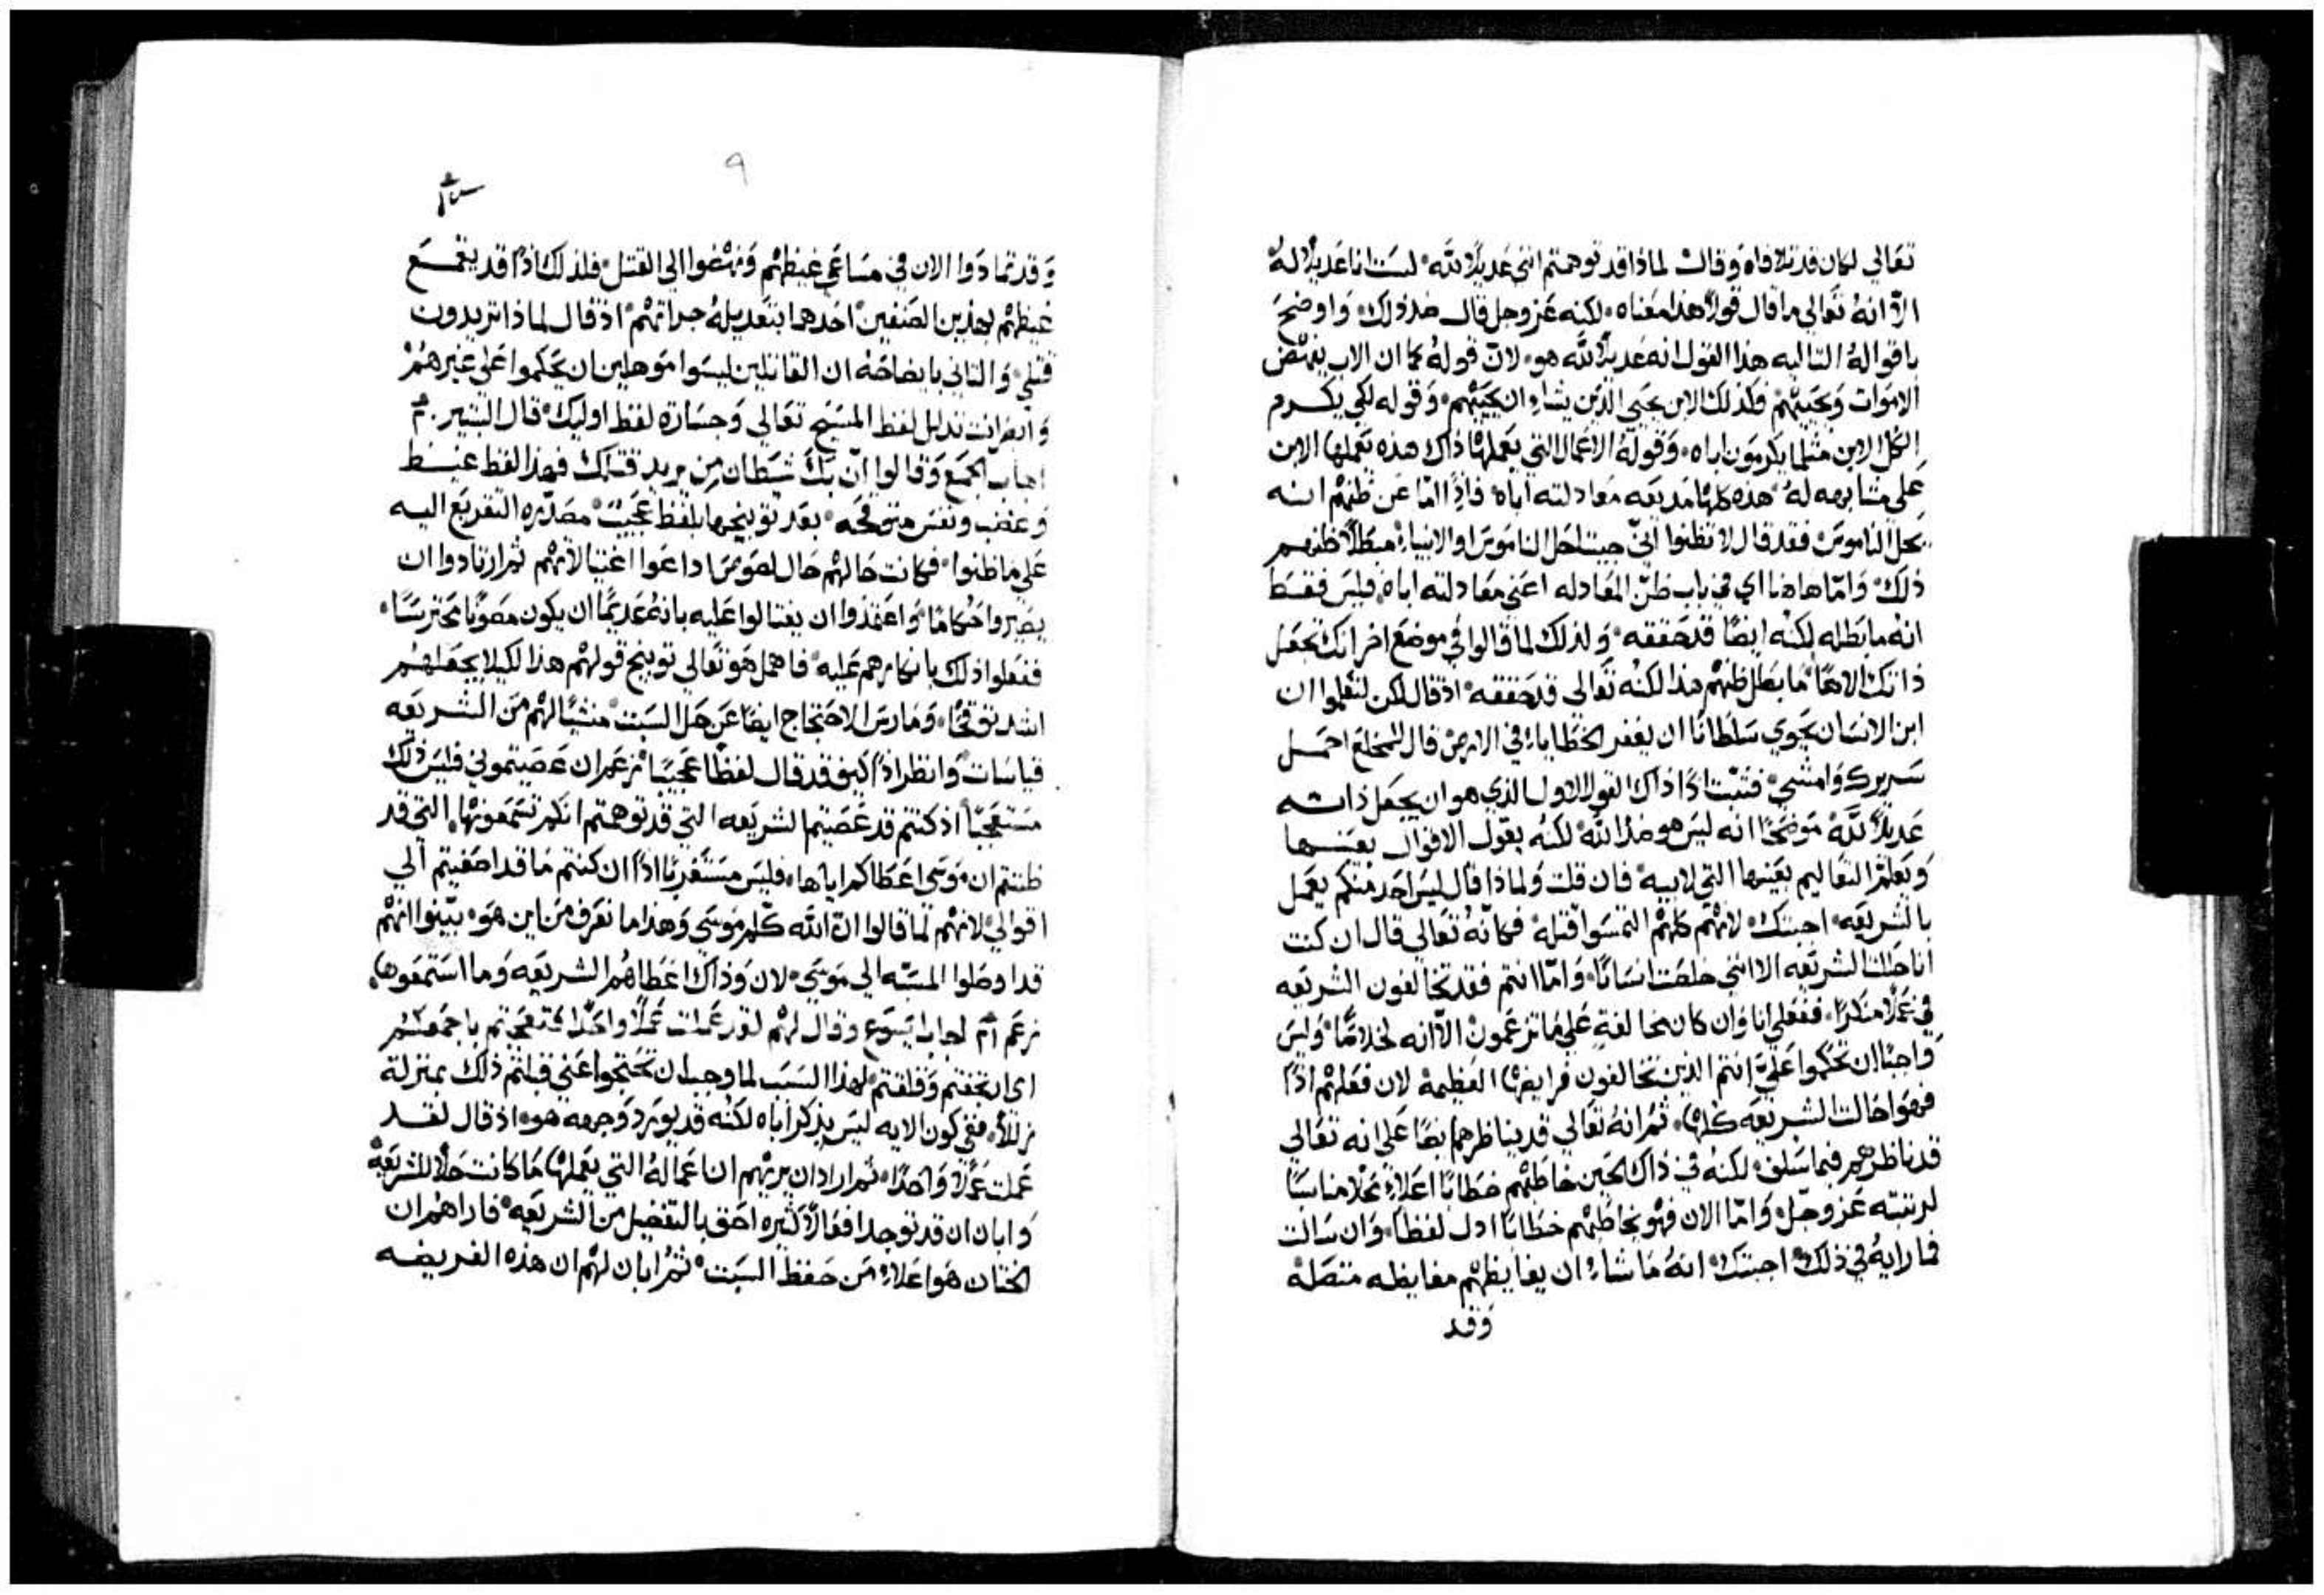 تعالي لكان قد تلافاه وقالت لماذا قد توهمتم انني عديلاً لله لست انا عديلاً له
الاّ انهُ تعالي ما قال قولاً هذا معناه لكنه عز وجل قال ضد ذلك واوضح
باقوالهُ التاليه هذا القول انه عديلاً لله هو لان قولهُ كما ان الاب ينهض
الاموات ويحييهم فكذلك الابن يحيي الذين يشاء ان يحييهم وقوله لكي يكرم
الكل الابن مثلما يكرمون اباه وقولهُ الاعمال التي يعملها ذاك هذه يعملها الابن
علي مشابهه لهُ هذه كلها مديعه معادلته اباه فاذاً امّا عن ظنهم انه
يحل الناموس فقد قال لا تظنوا انّي جيت احل الناموس او الانبياء مبطلاً ظنهم
ذلك وامّا هاهنا اي في باب ظنّ المعادله اعني معادلته اباه فليس فقط
انه ما بطله لكنه ايضاً قد حققه ولذلك لما قالوا في موضع اخر انك تجعل
ذاتك الاهاً ما بطل ظنهم هذا لكنه تعالي قد حققه اذ قال لكن لتعلموا ان
ابن الانسان يحوي سلطاناً ان يغفر الخطايا في الارض قال للمخلع احمل
سريرك وامشي فتبت اذاً ذاك القول الاول الذي هو ان يجعل ذاته
عديلاً لله موضحاً انه ليس هو ضد الله لكنه يقول الاقوال بعينها
ويعلم التعاليم بعينها التي لابيه فان قلت ولماذا قال ليس احد منكم يعمل
بالشريعه اجبتك لانهم كلهم التمسوا قتله فكانّهُ تعالي قال ان كنت
انا حللت الشريعه الا انني خلصت انساناً وامّا انتم فقد تخالفون الشريعه
في عملاً منكراً ففعلي انا وان كان مخالفة علي ما تزعمون الاّ انه لخلاصاً وليس
واجباً ان تحكموا عليّ انتم الذين تخالفون فرايضها العظيمة لان فعلهم اذاً
فهو حالت الشريعه كلها ثم انهُ تعالي قد يناظرهم ايضاً علي انه تعالي
قد ناظرهم فيما سلف لكنهُ في ذاك الحين خاطبهم خطاباً اعلاء محلاً مناسباً
لرتبته عز وجل وامّا الان فهو يخاطبهم خطاباً ادل لفظا وان سالت
فما رايهُ في ذلك اجبتك انهُ ما شاء ان يغايظهم مغايظه متصله
وقد
٩
وقد تمادوا الان في مساعي غيظهم ونهضوا الي القتل فلذلك اذاً قد يقمع
غيظهم بهذين الصنفين احدهما بتعديله جراتهم اذ قال لماذا تريدون
قتلي والثاني بايضاحه ان القاتلين ليسوا موهلين ان يحكموا علي غيرهم
وانظر انت تدلل لفظ المسيح تعالي وجسارة لفظ اوليك قال البشير
اجاب الجمع وقالوا انّ بك شيطان من يريد قتلك فهذا لفظ غيظ
وغضب ونفس متوقحه بعد توبيخها بلفظ عجيب مصدّره التقريع اليه
علي ما ظنوا فكانت حالهم حال لصوص اداعوا اغتيالاتهم ثم ارتادوا ان
يصيروا حكاماً واعتمدوا ان يغتالوا عليه بانه عديماً ان يكون مصوناً محترساً
ففعلوا ذلك بانكارهم عليه فاهمل هو تعالي توبيخ قولهم هذا لكيلا يجعلهم
اشد توقحاً ومارس الاحتجاج ايضاً عن حل السبت منشياً لهم من الشريعه
قياسات وانظر اذاً كيف قد قال لفظاً عجيباً زعم ان عصيتموني فليس ذلك
مستعجباً اذ كنتم قد عصيتم الشريعه التي قد توهمتم انكم تستمعونها التي قد
ظننتم ان موسي اعطاكم اياها فليس مستغرباً اذاً ان كنتم ما قد اصغيتم الي
اقوالي لانهم لما قالوا ان الله كلّم موسي وهذا ما نعرف من اين هو بيّنوا انهم
قد اوصلوا المسبّه الي موسي لان وذاك اعطاهم الشريعه وما استمعوها
زعم اجاب يسوع وقال لهم لقد عملت عملاً واحداً فتعجبتم باجمعكم
اي ارتجفتم وقلقتم لهذا السبب لما وجب ان تحتجوا عني قبلتم ذلك بمنزلة
زللاً ففي كون الايه ليس يذكر اباه لكنه قد يورد وجهه هو اذ قال لقد
عملت عملاً واحداً ثم اراد ان يريهم ان اعمالهُ التي يعملها ما كانت حلاً للشريعه
وابان ان قد توجد افعالاً كثيره احق بالتفضيل من الشريعه فاراهم ان
الختان هو اعلاء من حفظ السبت ثم ابان لهم ان هذه الفريضه